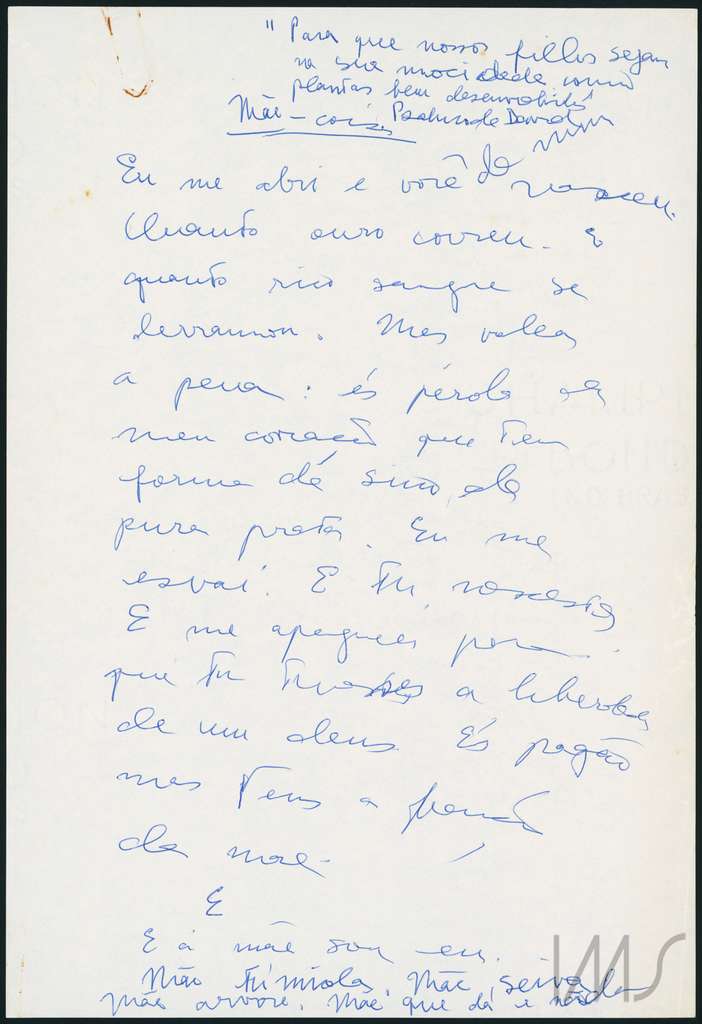 "Para que nossos filhos sejam
na sua mocidade como
plantas bem desenvolvidas"
Mãe-coisa Psalmo de David
de mim
Eu me abri e você nasceu.
Quanto ouro correu. E
quanto rico sangue se
derramou. Mas valeu
a pena: és pérola de
meu coração que tem
forma de sino de
pura prata. Eu me
esvaí. E tu nasceste
E me apaguei para
que tu tivesses a liberda
de um deus. És pagão
mas tens a
da mãe.
E
E a mãe sou eu.
Mãe túmida. Mãe seiva
Mãe árvore. Mãe que dá e nada
IMS